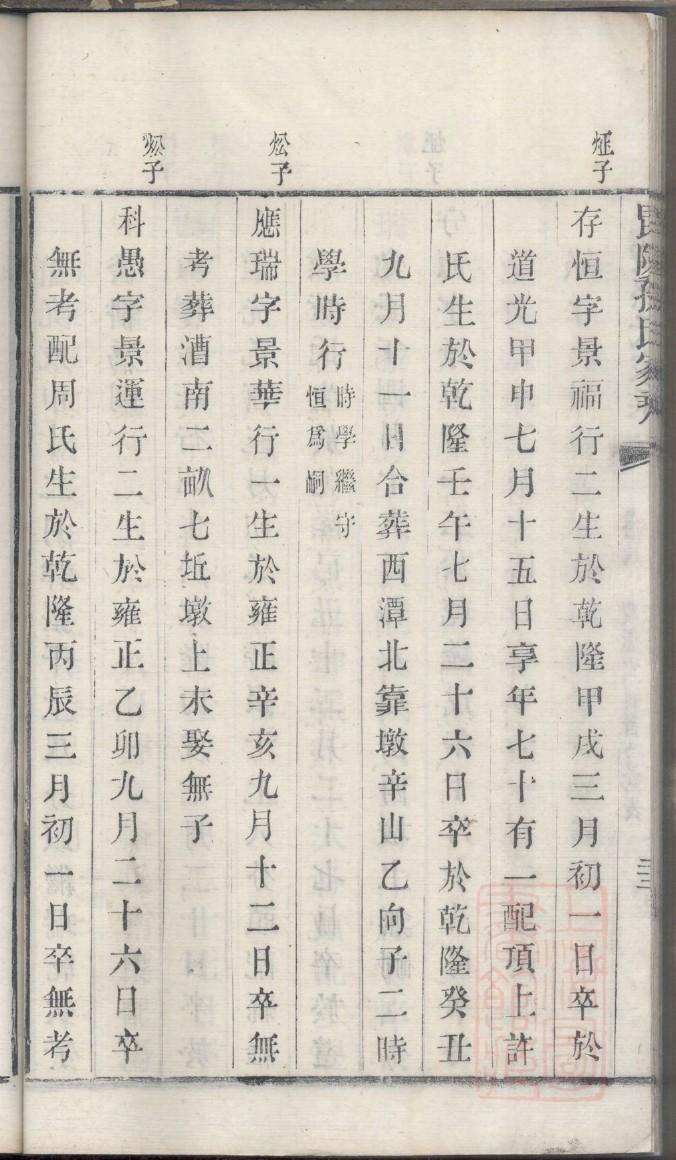 毘陵孫氏家乘
烶子
存恒字景福行二生於乾隆甲戌三月初一日卒於
道光甲申七月十五日享年七十有一配頂上許
氏生於乾隆壬午七月二十六日卒於乾隆癸丑
九月十一日合葬西潭北靠墩辛山乙向子二時
學時行時學繼守恒爲嗣
炂子
應瑞字景華行一生於雍正辛亥九月十二日卒無
考葬漕南二畝七坵墩上未娶無子
炂子
科愚字景運行二生於雍正乙卯九月二十六日卒
無考配周氏生於乾隆丙辰三月初一日卒無考